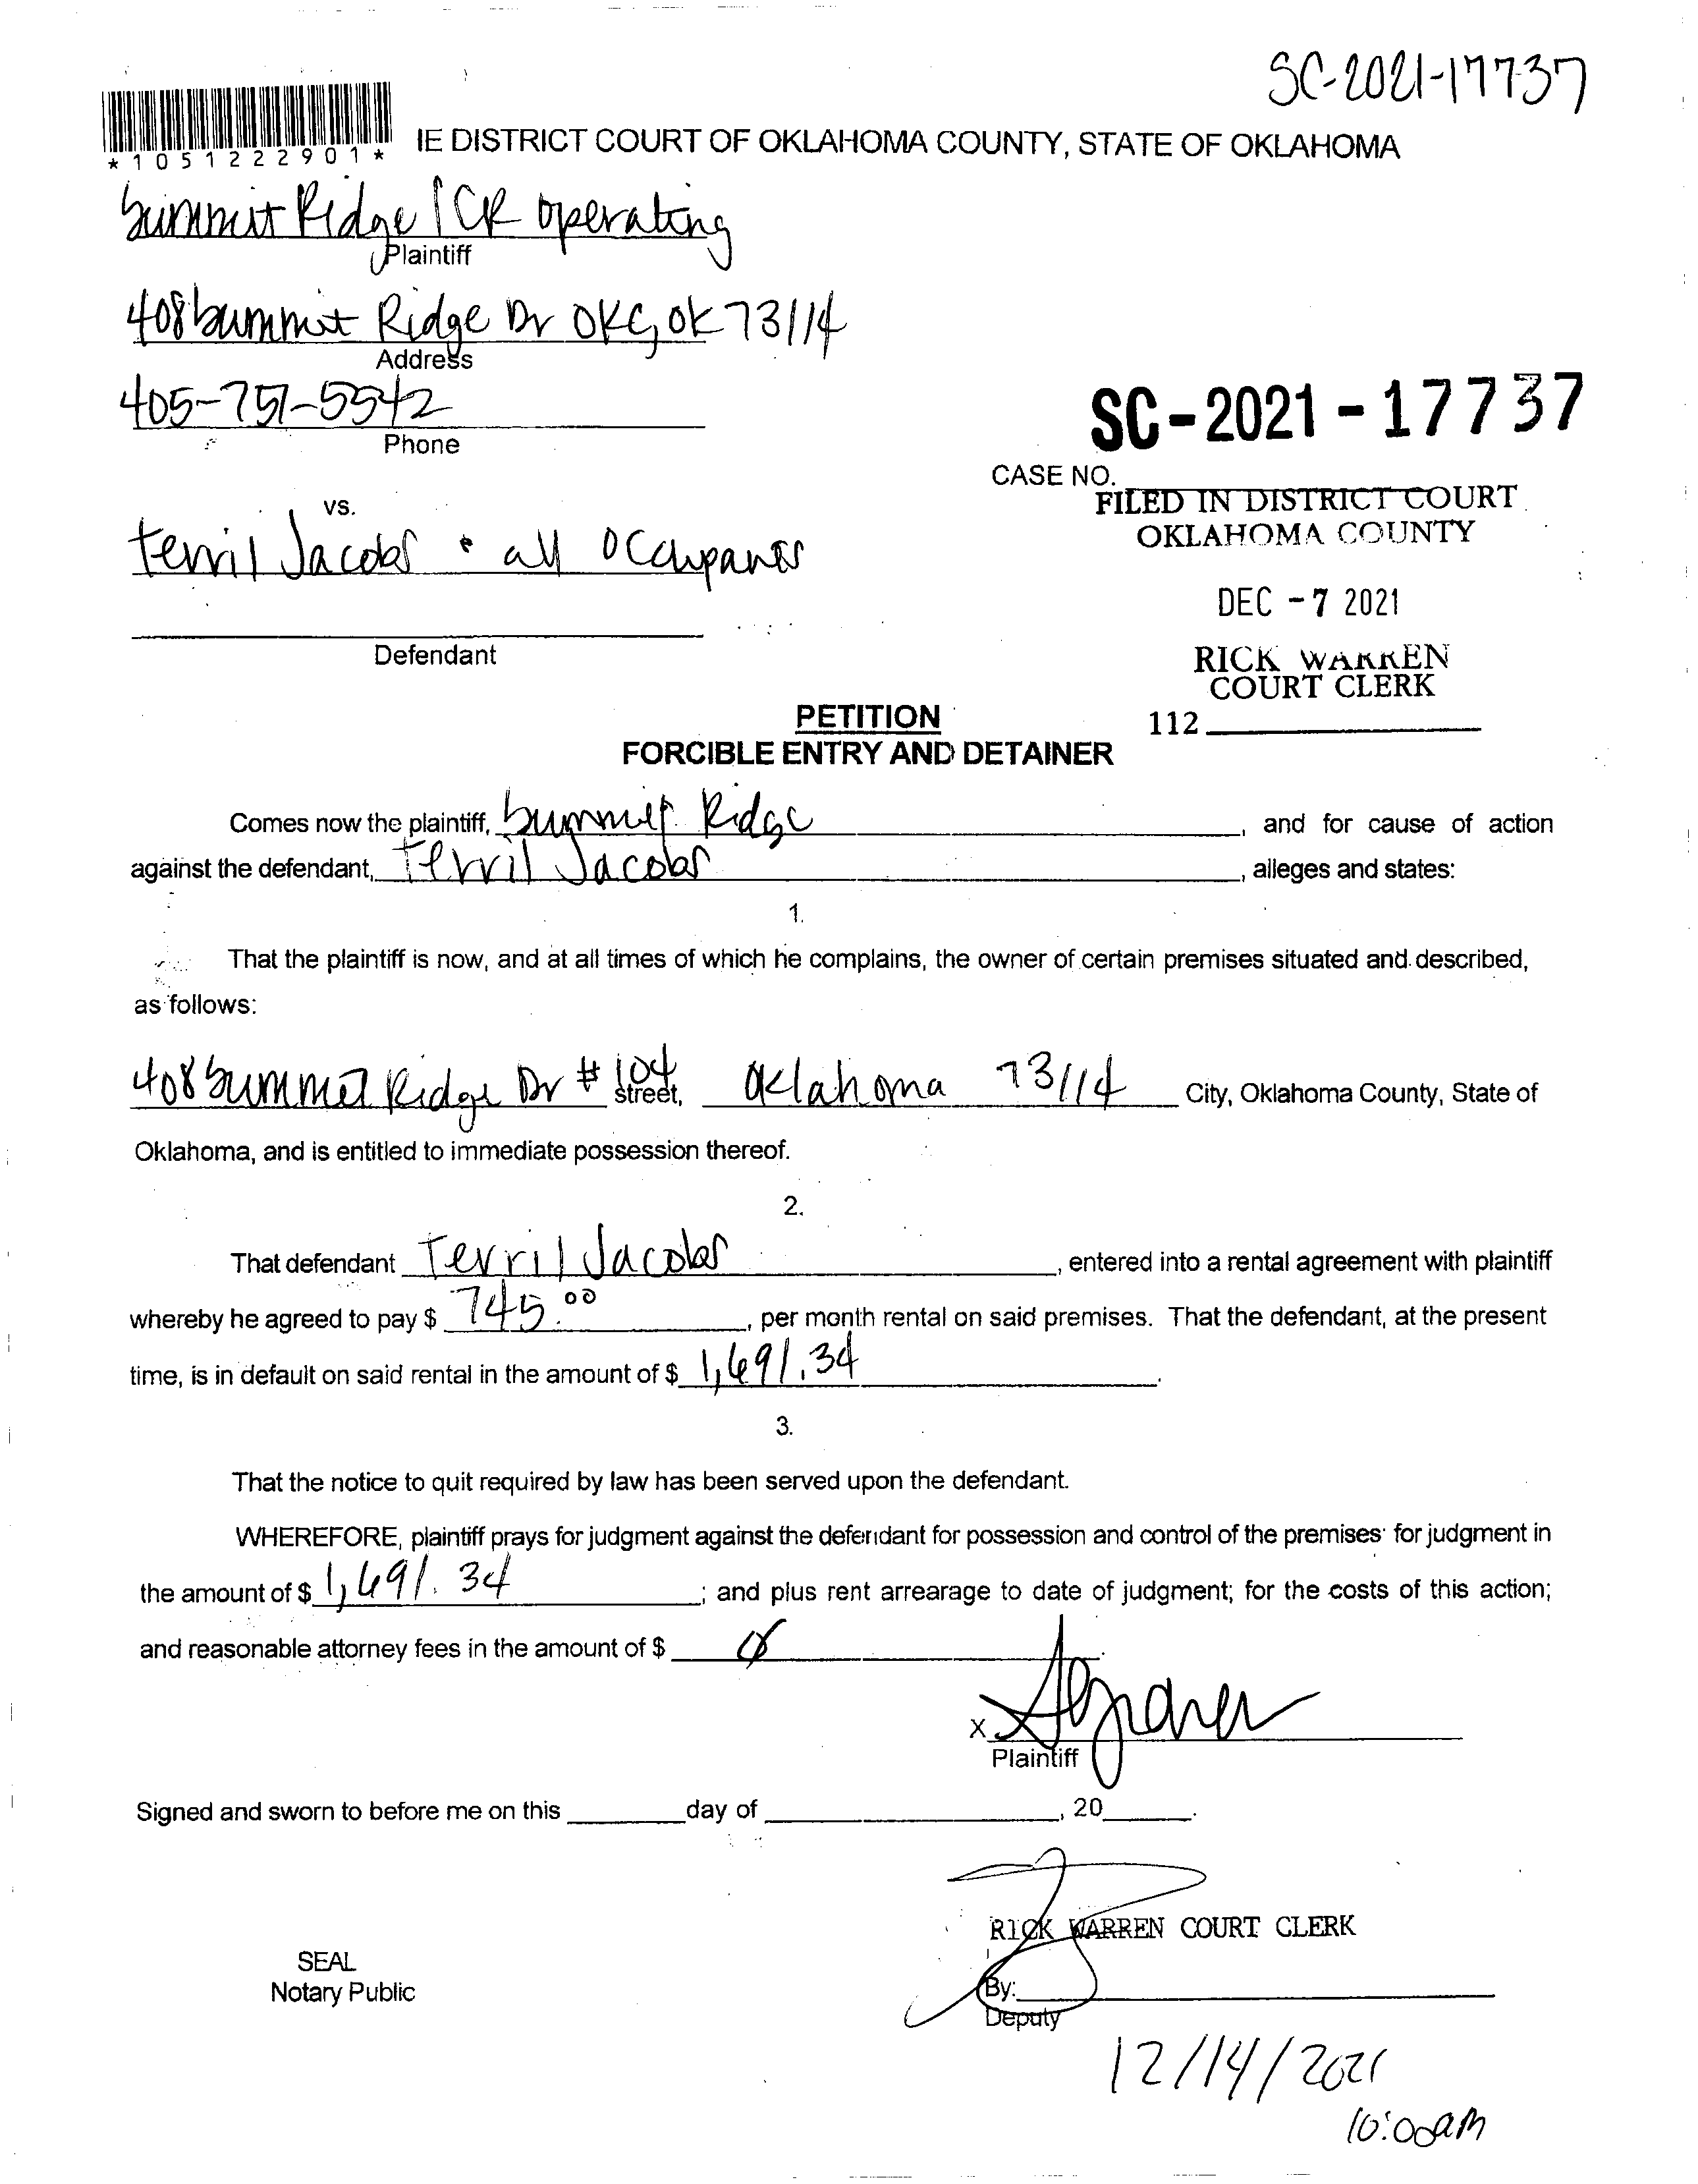 SC-2021-17737
*1051222901*
IE DISTRICT COURT OF OKLAHOMA COUNTY, STATE OF OKLAHOMA
Summit Ridge / CR Operating
Plaintiff
408 Summit Ridge Dr OKC, OK 73114
Address
405-751-5542
Phone
SC-2021-17737
CASE NO.
FILED IN DISTRICT COURT
OKLAHOMA COUNTY
vs.
Terril Jacobs & all occupants
DEC -7 2021
Defendant
RICK WARREN
COURT CLERK
112
PETITION
FORCIBLE ENTRY AND DETAINER
Comes now the plaintiff, Summit Ridge, and for cause of action
against the defendant, Terril Jacobs, alleges and states:
1.
That the plaintiff is now, and at all times of which he complains, the owner of certain premises situated and described,
as follows:
408 Summit Ridge Dr # 104 street, Oklahoma 73114 City, Oklahoma County, State of
Oklahoma, and is entitled to immediate possession thereof.
2.
That defendant Terril Jacobs, entered into a rental agreement with plaintiff
whereby he agreed to pay $ 745.00, per month rental on said premises. That the defendant, at the present
time, is in default on said rental in the amount of $ 1,691.34.
3.
That the notice to quit required by law has been served upon the defendant.
WHEREFORE, plaintiff prays for judgment against the defendant for possession and control of the premises for judgment in
the amount of $ 1,691.34; and plus rent arrearage to date of judgment; for the costs of this action;
and reasonable attorney fees in the amount of $ 0
X
Plaintiff
Signed and sworn to before me on this ____ day of ____, 20____.
RICK WARREN COURT CLERK
SEAL
Notary Public
By:
Deputy
12/14/2021
10:00am